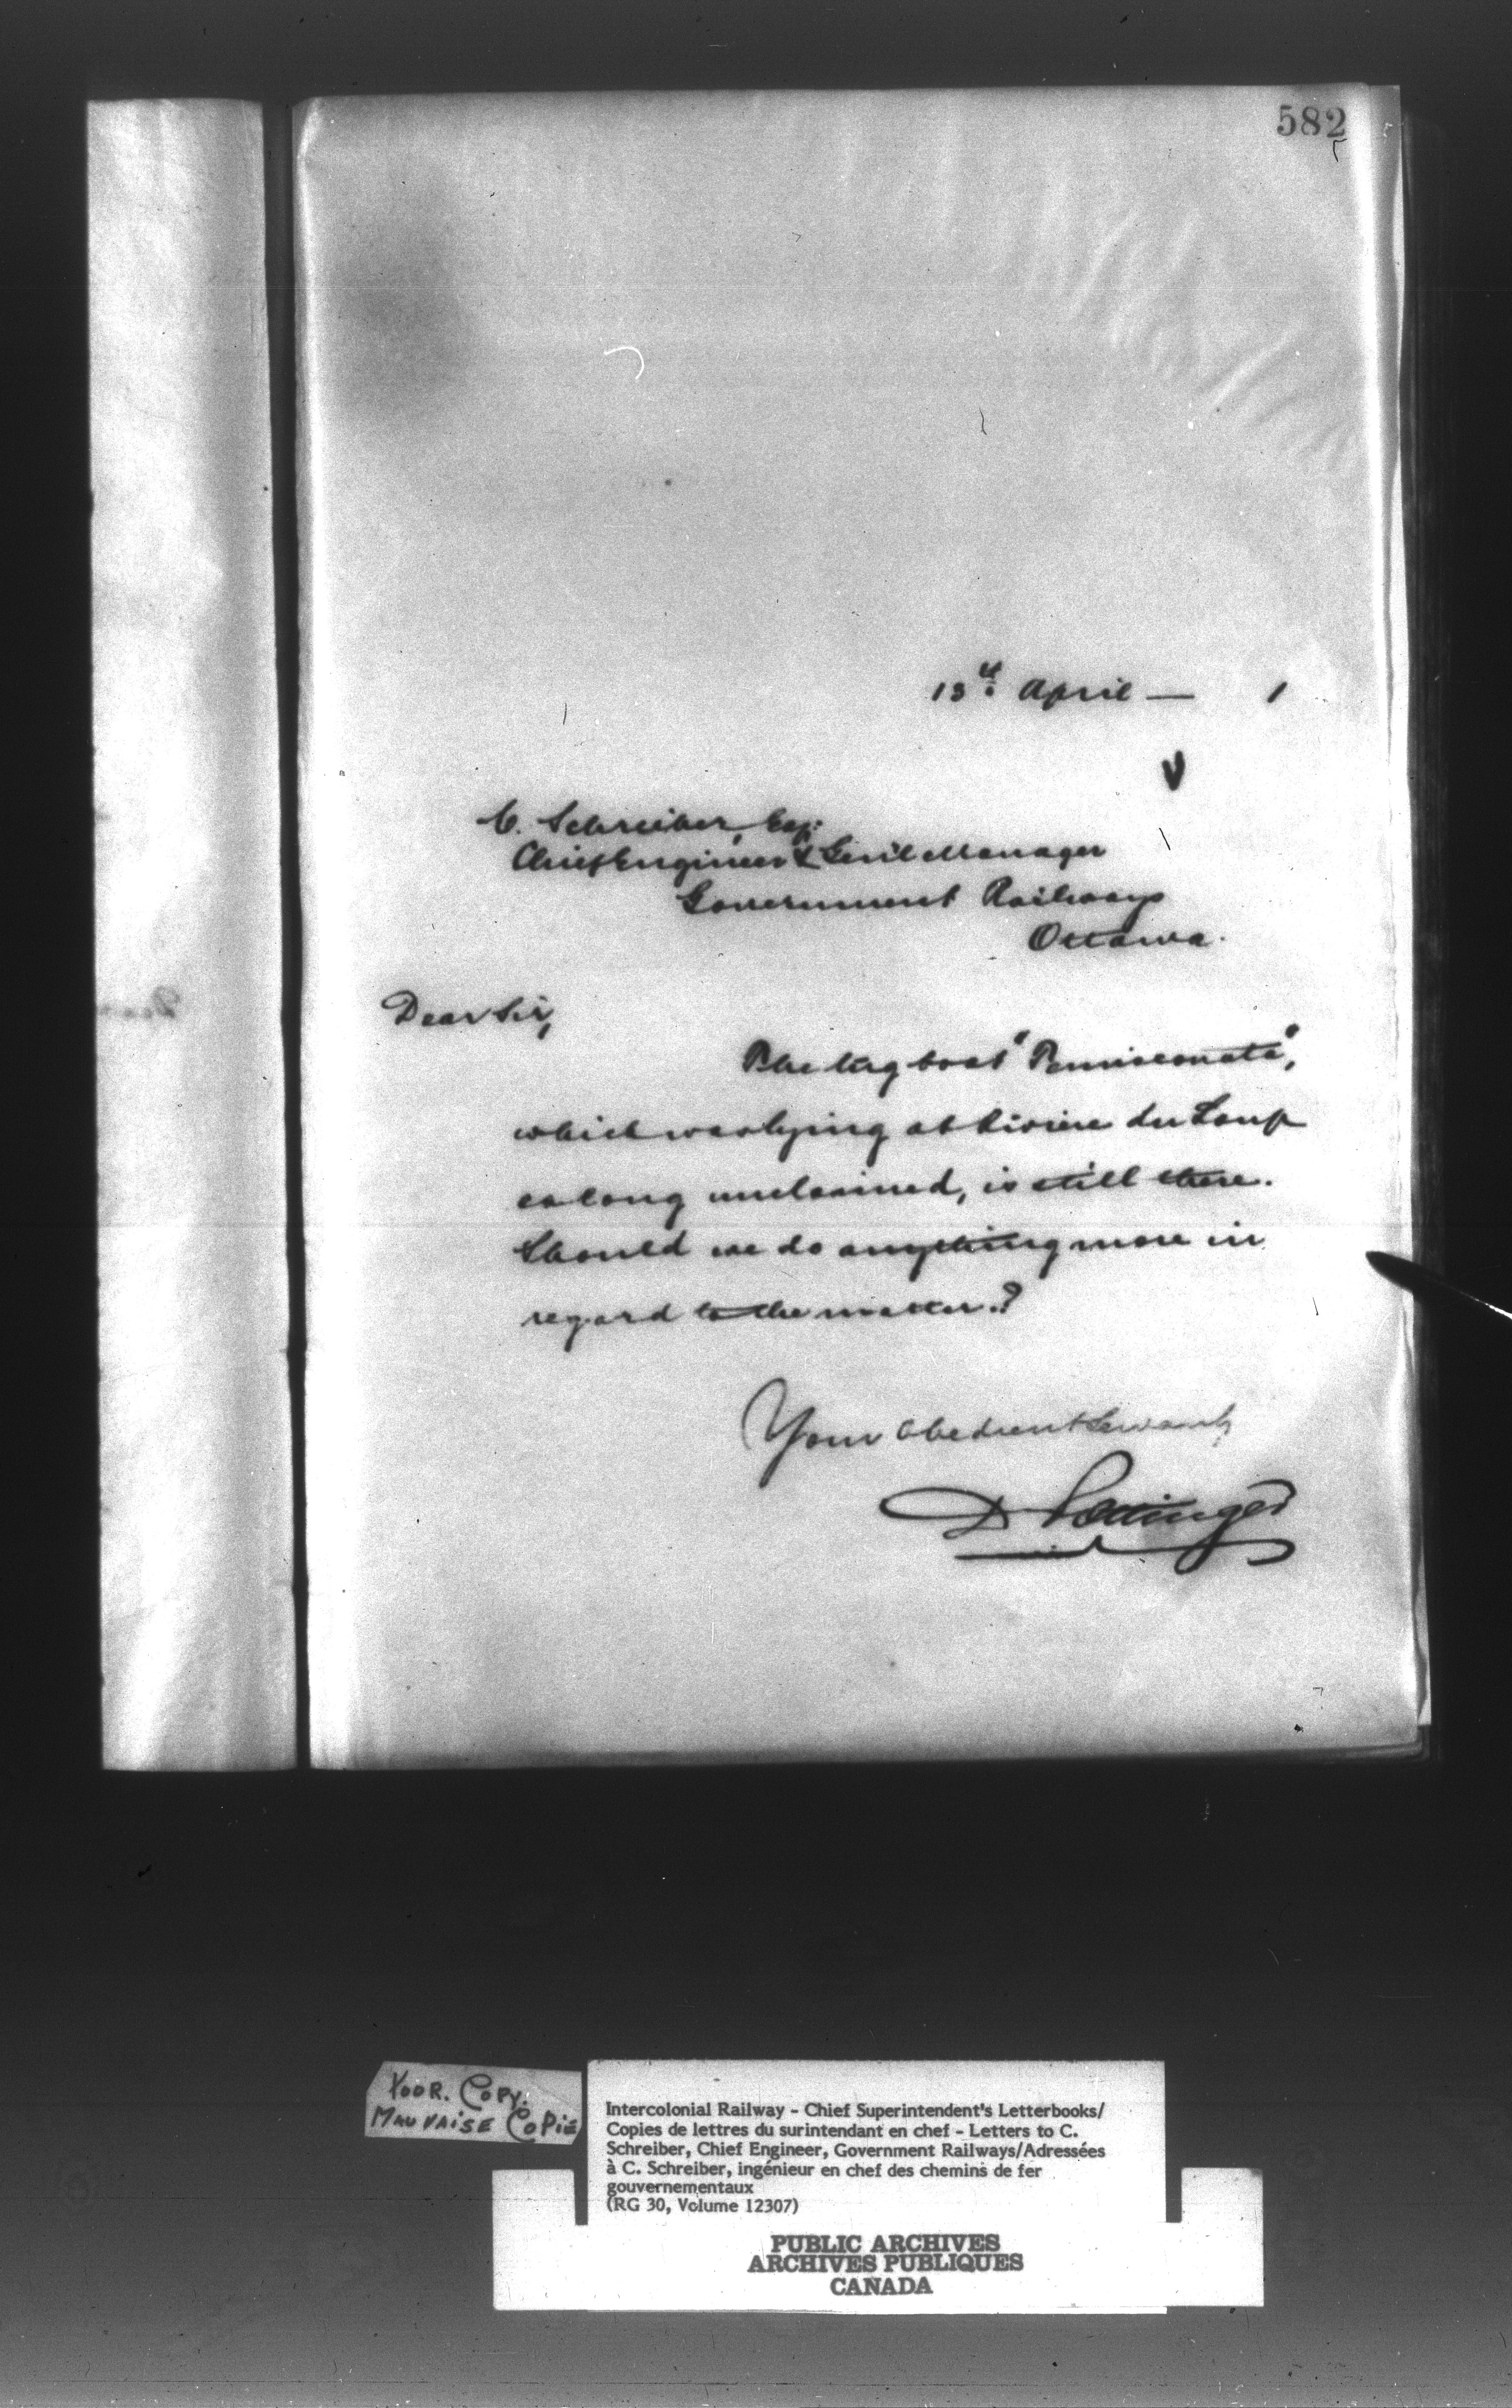 582
13th April — 1
C. Schreiber, Esq:
Chief Engineer & Gen'l Manager
Government Railways
Ottawa.
Dear Sir,
The tug boat "Temisconata",
which was lying at Riviere du Loup
so long unclaimed, is still there.
Should we do anything more in
regard to the matter.?
Your Obedient Servant,
D Pottinger
POOR. COPY.
MAUVAISE COPIE
Intercolonial Railway - Chief Superintendent's Letterbooks/
Copies de lettres du surintendant en chef - Letters to C.
Schreiber, Chief Engineer, Government Railways/Adressées
à C. Schreiber, ingénieur en chef des chemins de fer
gouvernementaux
(RG 30, Volume 12307)
PUBLIC ARCHIVES
ARCHIVES PUBLIQUES
CANADA